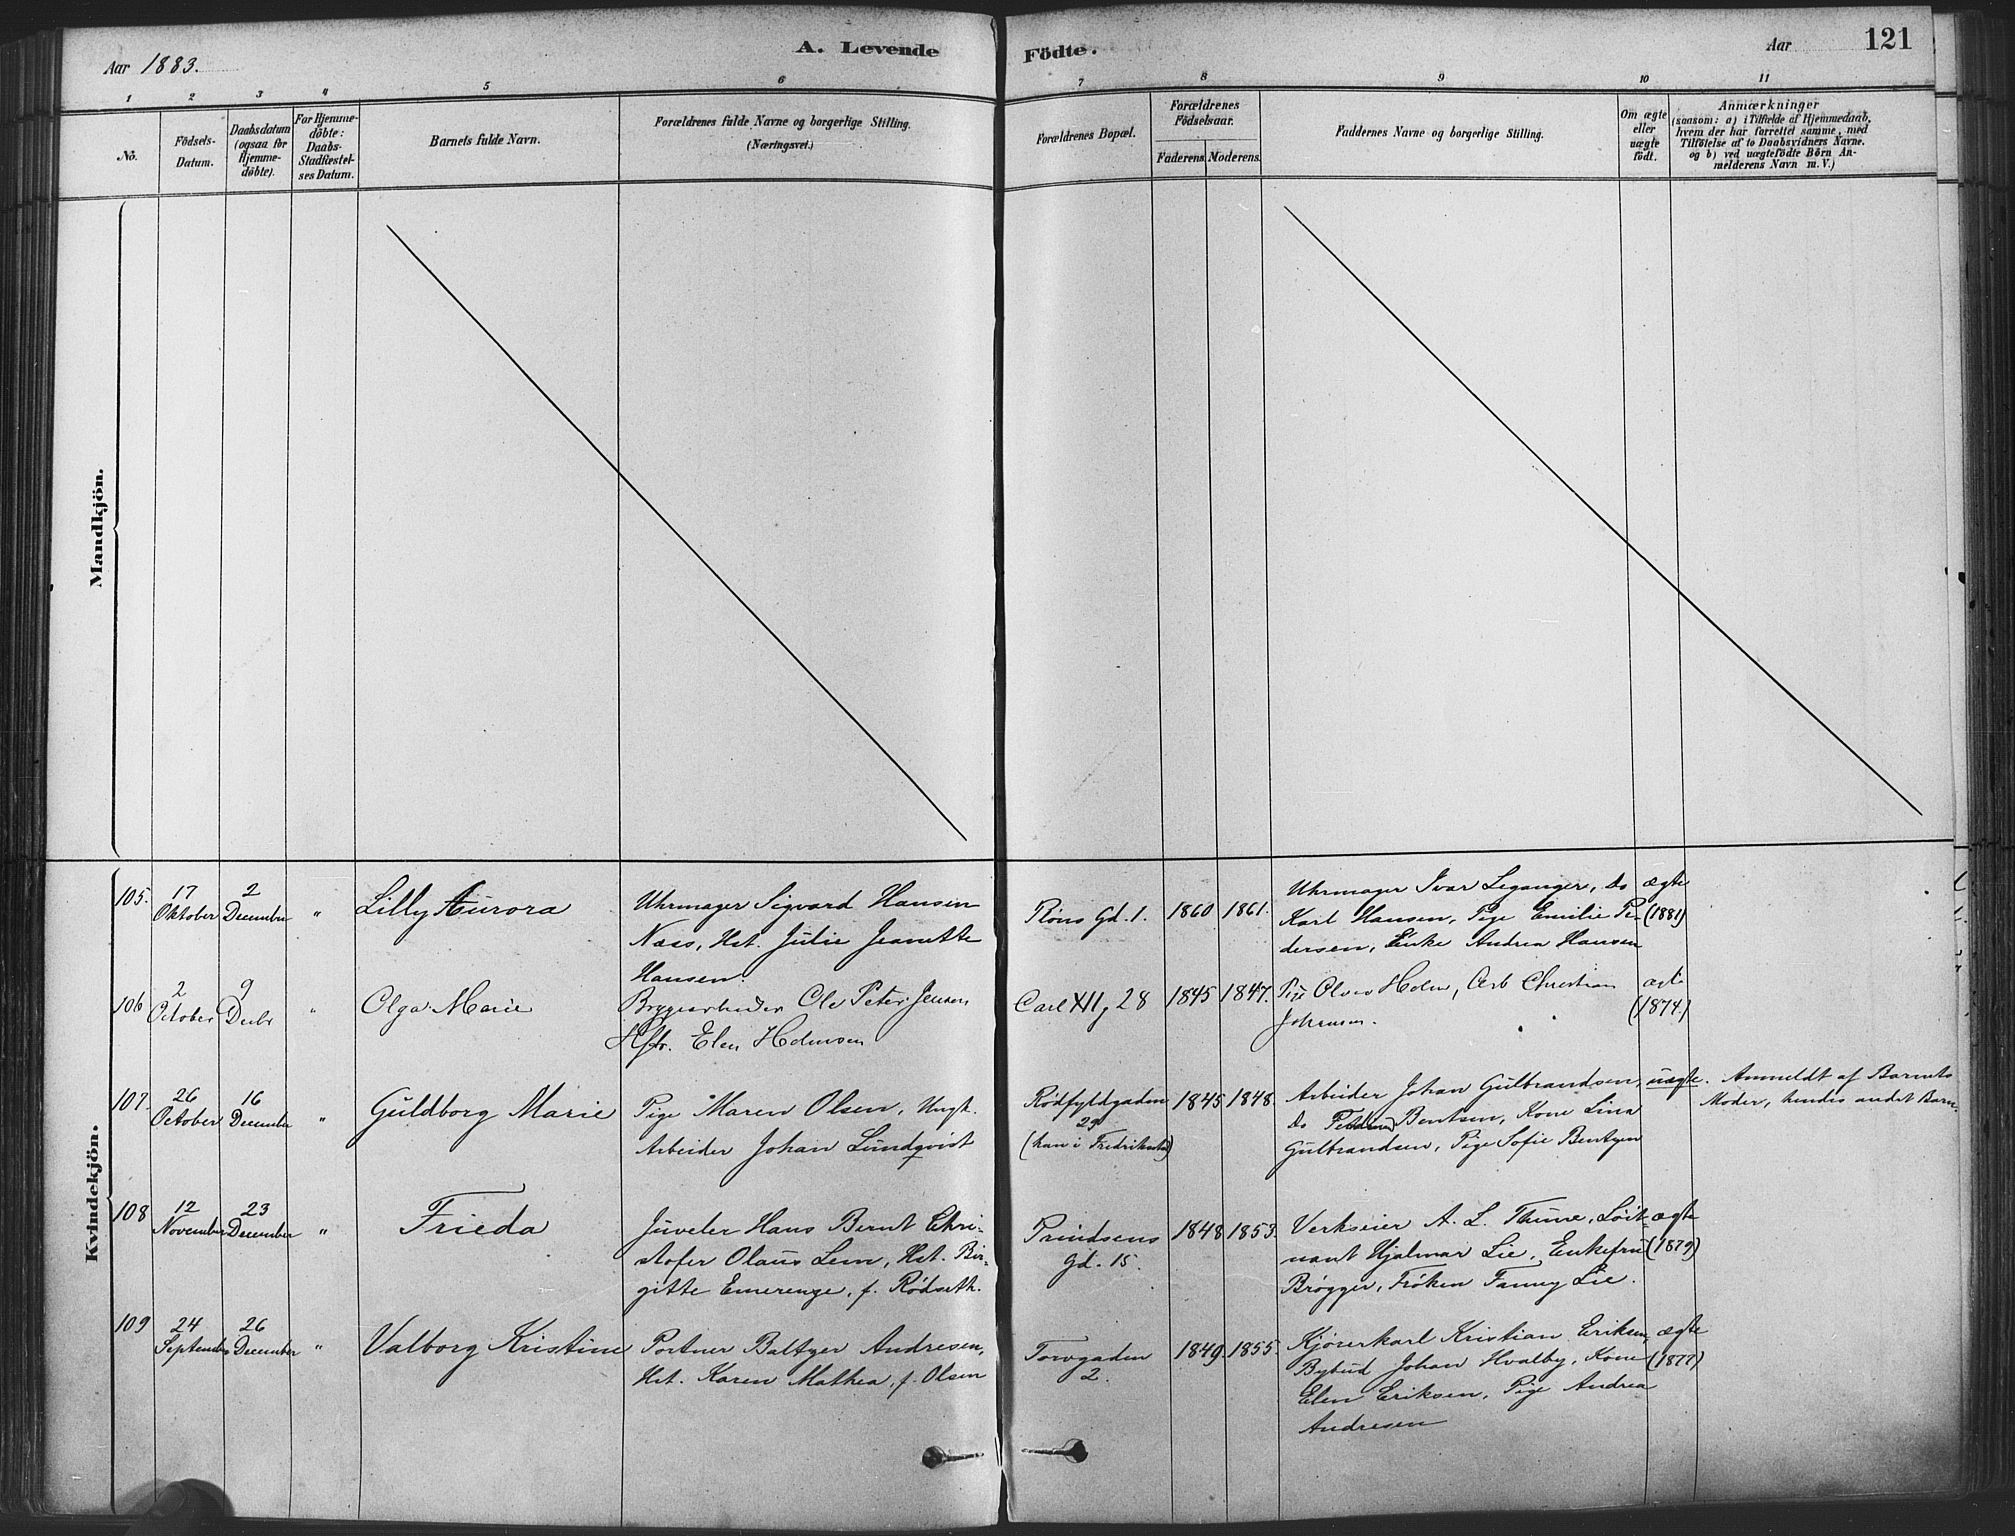 Aar 1883.
A. Levende
Födte.
Aar
121
1 2 3 4 5 6 7 8 9 10 11
No.
Födsels-Datum.
Daabsdatum (ogsaa for Hjemme-döbte).
For Hjemme-döbte: Daabs-Stadfæstel-ses Datum.
Barnets fulde Navn.
Forældrenes fulde Navne og borgerlige Stilling.
(Næringsvei.)
Forældrenes Bopæl.
Forældrenes Födselsaar.
Faderens. Moderens.
Faddernes Navne og borgerlige Stilling.
Om ægte eller uægte födt.
Anmærkninger
(saasom: a) i Tilfælde af Hjemmedaab, hvem der har forrettet samme, med Tilföielse af to Daabsvidners Navne, og b) ved uægtefödte Börn An-melderens Navn m. V.)
Mandkjön.
Kvindekjön.
105. 17 Oktober 2 December " Lilly Aurora
Uhrmager Sigvard Hansen
Næss, Hst. Julie Jeanette
Hansen.
Gd. 1. 1860 1861.
Uhrmager Ivar Leganger, do
Karl Hansen, Pige Emilie Pe-
dersen, Enke Andrea Hansen
ægte (1881)
106 2 October 9 Decbr " Olga Marie
Bryggearbeider Ole Peter Jensen
Hstr. Elen Holmsen
Carl XII g 28 1845 1847.
Pige Holm, Arb Christian
Johansen.
ægte (1874)
107. 26 October 16 December " Guldborg Marie
Pige Maren Olsen, Ungk.
Arbeider Johan Lundqvist
Rödfyldgaden
29
(han i Fredrikstad)
1845 1848.
Arbeider Johan Gulbrandsen,
do Bentsen, Kone Lina
Gulbrandsen, Pige Sofie Bentzen
uægte.
Anmeldt af Barnets
Moder, hendes andet Barn.
108 12 November 23 December " Frieda
Juveler Hans Bernt Chri-
stofer Olaus Lem, Hst. Bir-
gitte Emerenze, f. Rödseth.
Prindsens
Gd. 15.
1848 1853.
Verkseier A. L. Thune, Löit-
nant Hjalmar Lie, Enkefru
Brögger, Fröken Fanny Lie.
ægte (1879)
109 24 September 26 December " Valborg Kristine
Portner Baltzer Andresen,
Hst. Karen Mathea, f. Olsen
Torvgaden
2.
1849. 1855.
Kjörerkarl Kristian Eriksen,
Bybud Johan Hvalby, Kone
Elen Eriksen, Pige Andrea
Andresen
ægte (1877)